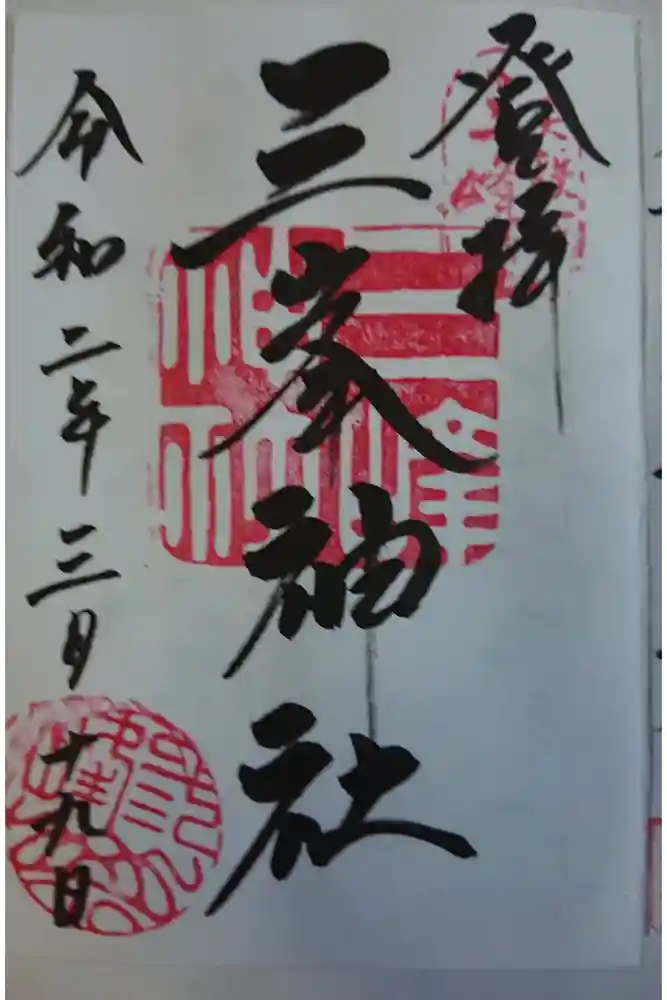 登拝
三峯神社
令和二年三月十九日
三峰神社